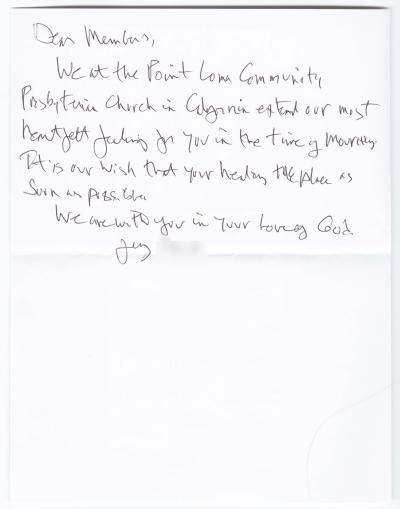 Dear Members,
We at the Point Loma Community
Presbyterian Church in California extend our most
heartfelt feelings for you in the time of Mourning.
It is our wish that your healing take place as
soon as possible.
We are with you in your Love of God.